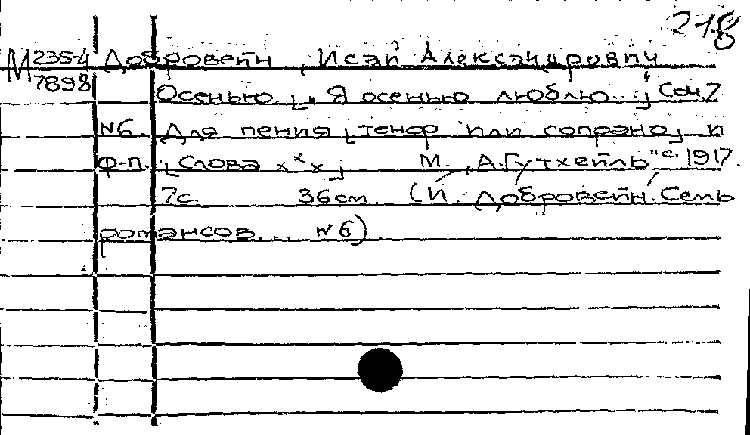 218
М 235-4 Добровейн, Исай Александрович
7898 Осенью [„Я осенью люблю...“] Соч. 7
№6. Для пения [тенор или сопрано] и
ф-п. [Слова xxx] М., „А. Гутхейль“ с. 1917.
7с. 36см. (И. Добровейн. Семь
романсов... №6)